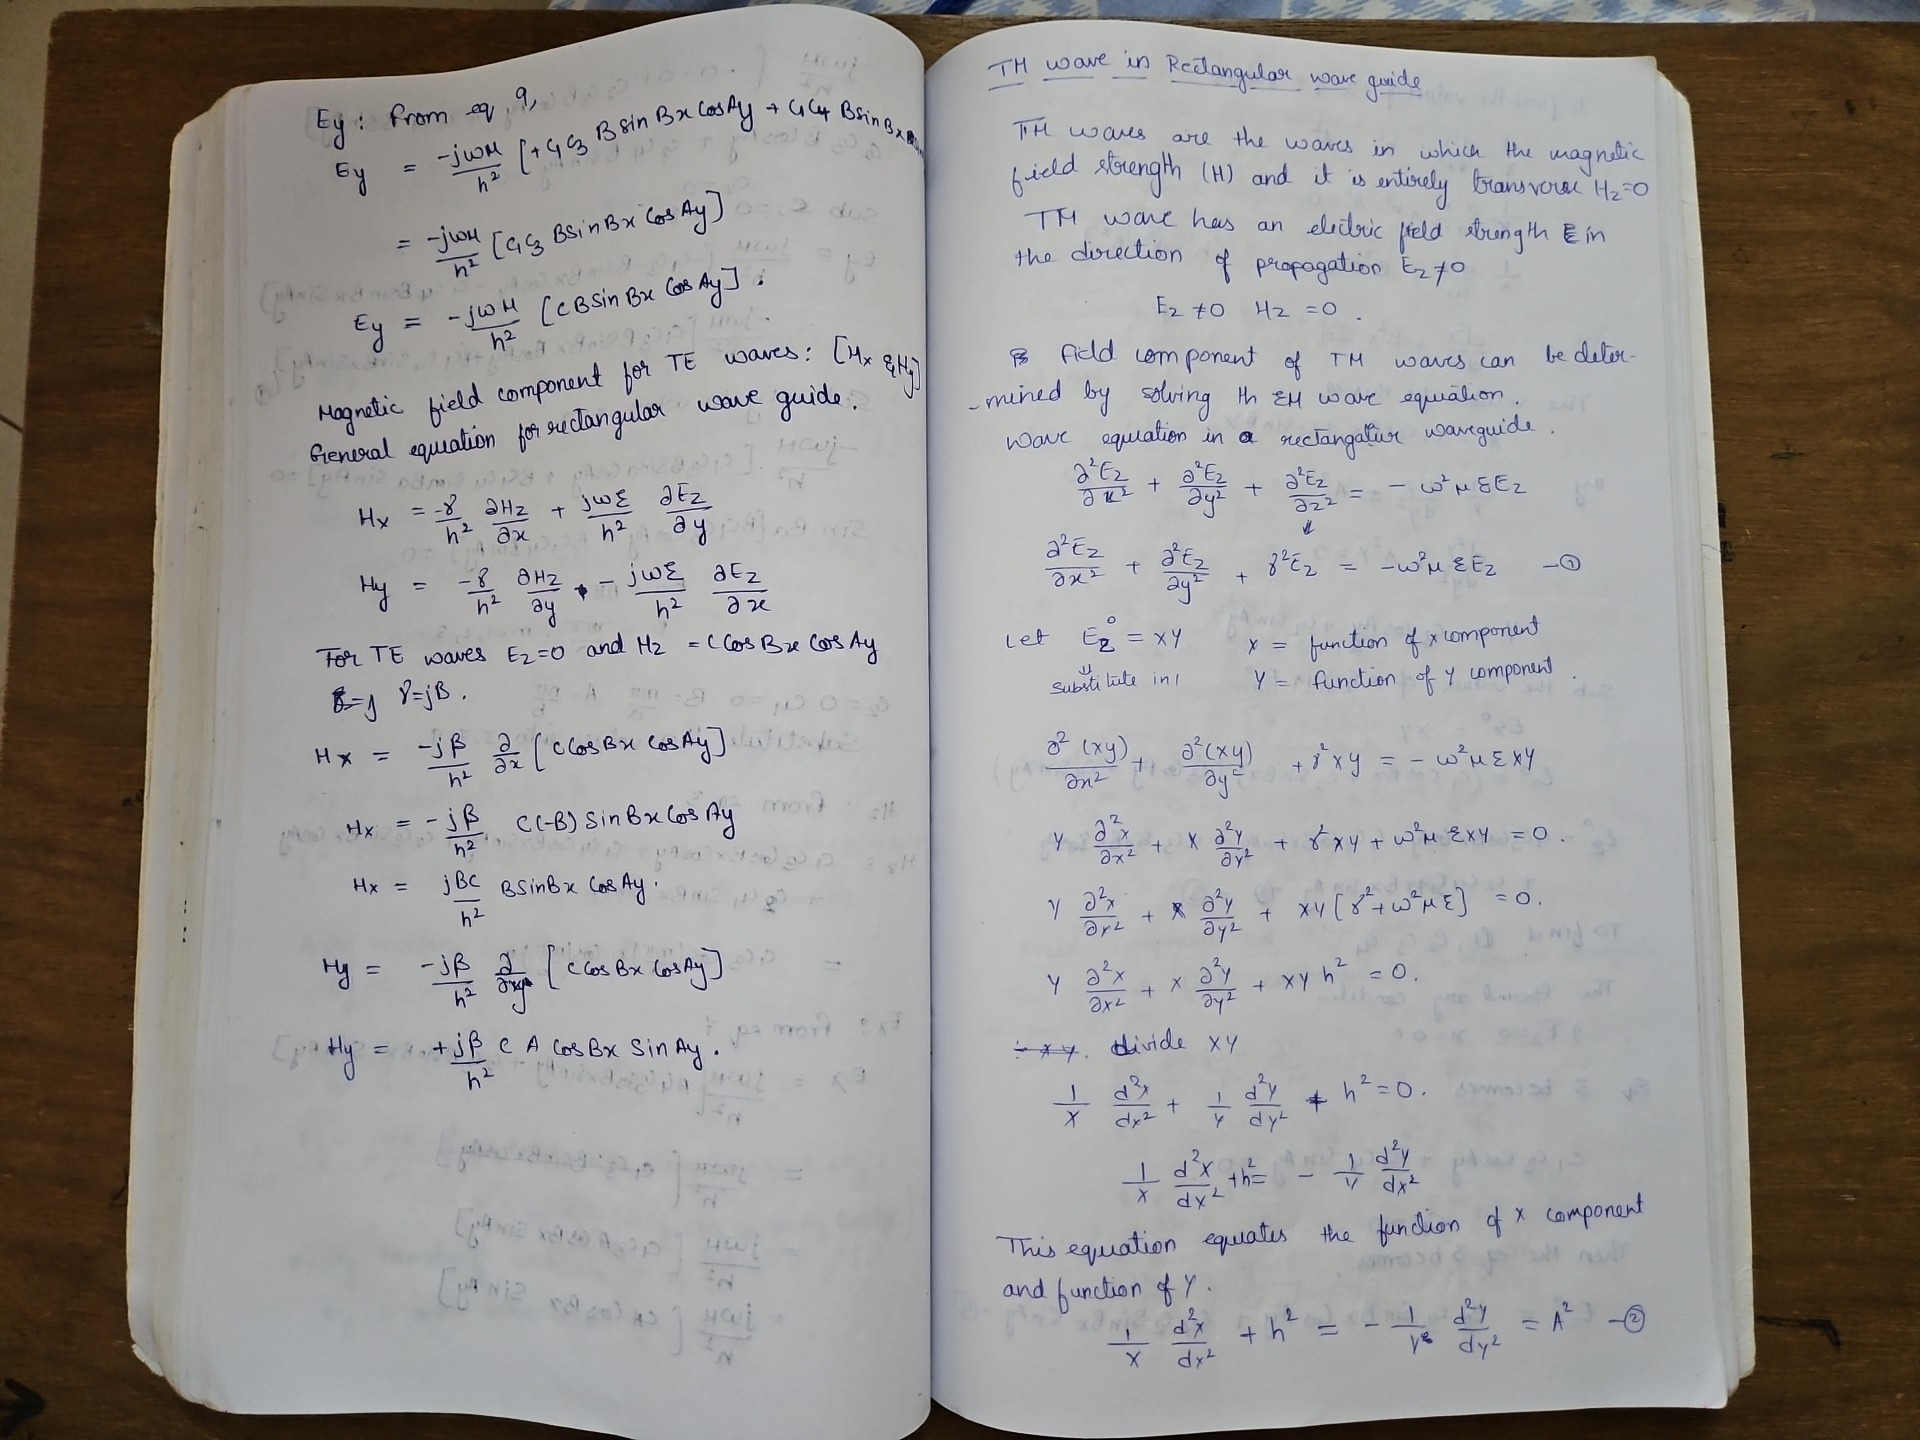 Ey : From eq 9,
Ey = -jωμ/h² [+C₁C₃ B sin Bx Cos Ay + C₁C₄ B sin Bx
= -jωμ/h² [C₁C₃ B sin Bx Cos Ay]
Ey = -jωμ/h² [C B sin Bx Cos Ay].
Magnetic field component for TE waves: [Hx & Hy]
General equation for rectangular wave guide.
Hx = -γ/h² ∂Hz/∂x + jωε/h² ∂Ez/∂y
Hy = -γ/h² ∂Hz/∂y - jωε/h² ∂Ez/∂x
For TE waves Ez=0 and Hz = C Cos Bx Cos Ay
γ=jβ.
Hx = -jβ/h² ∂/∂x [C Cos Bx Cos Ay]
Hx = -jβ/h² C(-B) Sin Bx Cos Ay
Hx = jβC/h² B Sin Bx Cos Ay.
Hy = -jβ/h² ∂/∂y [C Cos Bx Cos Ay]
Hy = +jβ/h² C A Cos Bx Sin Ay.
TM wave in Rectangular wave guide
TM waves are the waves in which the magnetic
field strength (H) and it is entirely transverse Hz=0
TM wave has an electric field strength E in
the direction of propagation Ez≠0
Ez ≠0 Hz =0.
Field component of TM waves can be deter-
-mined by solving th EM wave equation.
Wave equation in a rectangular waveguide.
∂²Ez/∂x² + ∂²Ez/∂y² + ∂²Ez/∂z² = - ω²μεEz
∂²Ez/∂x² + ∂²Ez/∂y² + γ²Ez = -ω²μεEz —①
Let Ez° = XY X = function of x component
substitute in 1 Y = function of Y component.
∂²(XY)/∂x² + ∂²(XY)/∂y² + γ²XY = - ω²με XY
Y ∂²X/∂x² + X ∂²Y/∂y² + γ²XY + ω²με XY = 0.
Y ∂²X/∂x² + X ∂²Y/∂y² + XY [γ²+ω²με] = 0.
Y ∂²X/∂x² + X ∂²Y/∂y² + XY h² = 0.
÷ XY. divide XY
1/X d²X/dx² + 1/Y d²Y/dy² + h² = 0.
1/X d²X/dx² + h² = - 1/Y d²Y/dx²
This equation equates the function of X component
and function of Y.
1/X d²X/dx² + h² = - 1/Y d²Y/dy² = A² —②